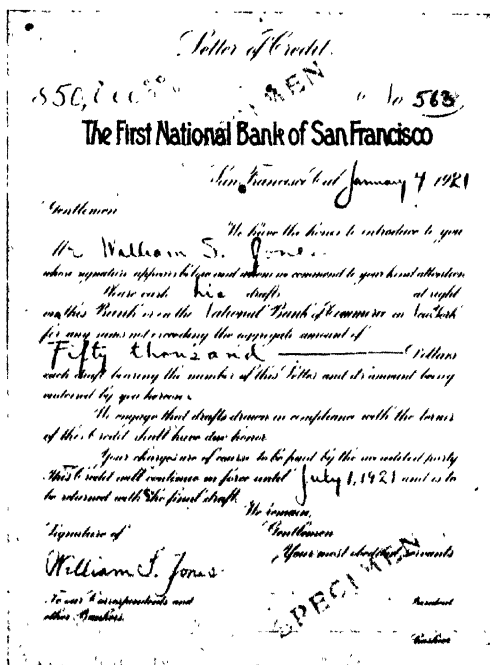 Letter of Credit.
$50,000 00/00 No 563
SPECIMEN
The First National Bank of San Francisco
San Francisco Cal January 4 1921
Gentlemen
We have the honor to introduce to you
Mr William S. Jones
whose signature appears below and whom we commend to your kind attention
Please cash his drafts at sight
on this Bank or on the National Bank of Commerce in New York
for any sums not exceeding the aggregate amount of
Fifty thousand Dollars
each draft bearing the number of this Letter and its amount being
endorsed by you hereon.
We engage that drafts drawn in compliance with the terms
of this credit shall have due honor
Your charges are of course to be paid by the accredited party
This Credit will continue in force until July 1, 1921 and is to
be returned with the final draft
We remain,
Signature of Gentlemen
Your most obedient servants
William S. Jones
SPECIMEN
To our Correspondents and President
other Bankers. Cashier